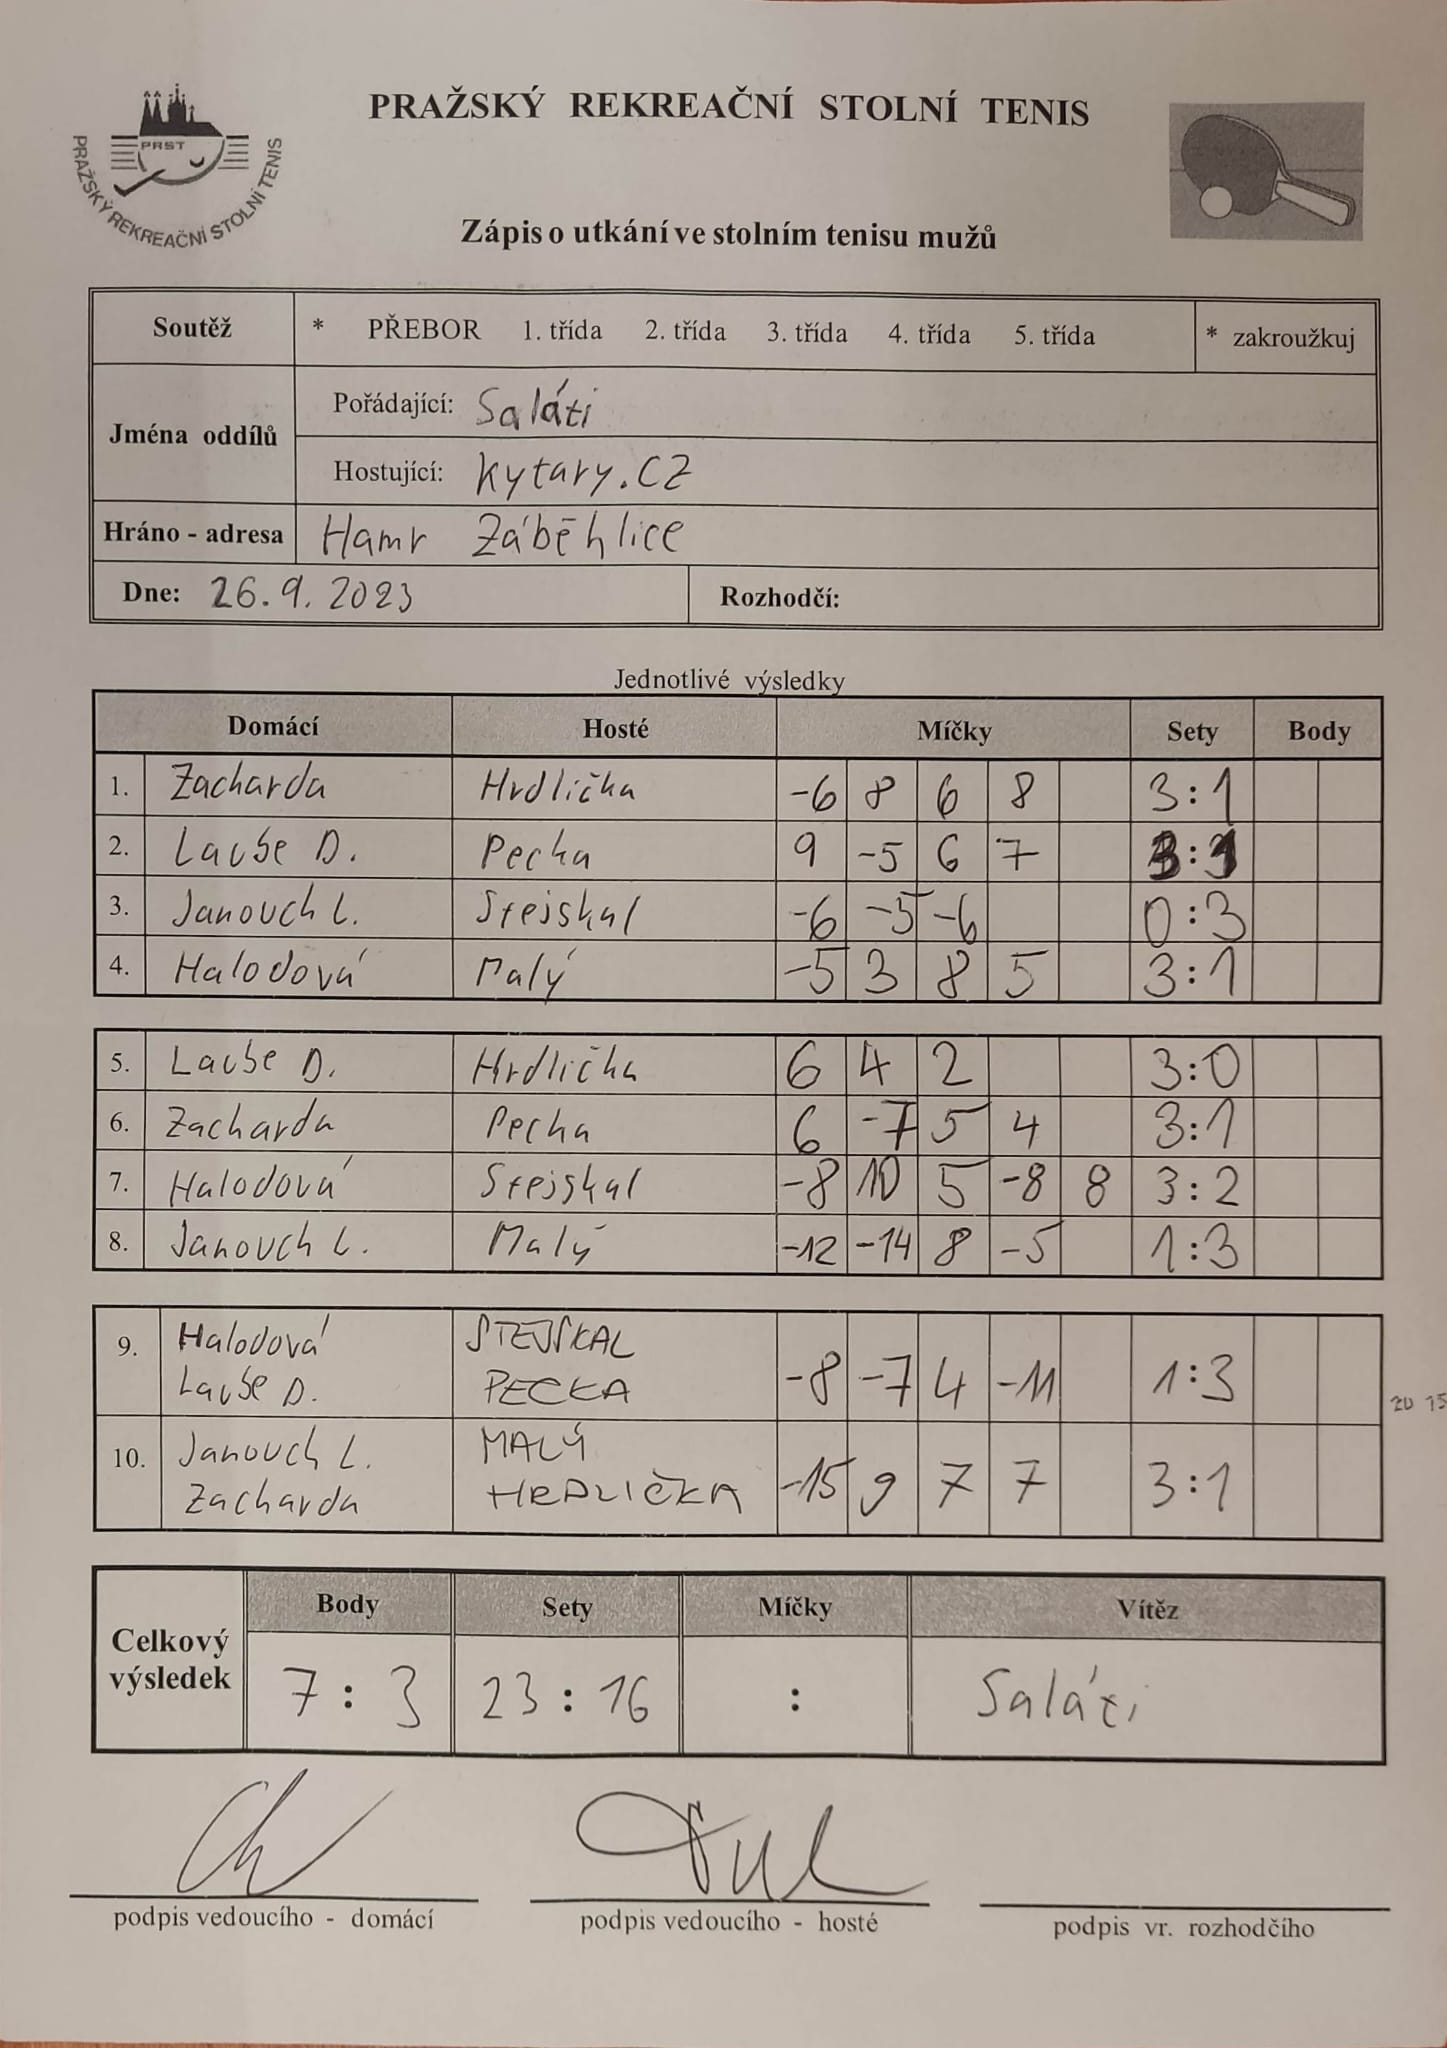 PRAŽSKÝ REKREAČNÍ STOLNÍ TENIS
PRST
PRAŽSKÝ REKREAČNÍ STOLNÍ TENIS
Zápis o utkání ve stolním tenisu mužů
Soutěž * PŘEBOR 1. třída 2. třída 3. třída 4. třída 5. třída * zakroužkuj
Jména oddílů
Pořádající: Saláti
Hostující: kytary.cz
Hráno - adresa Hamr Záběhlice
Dne: 26.9.2023 Rozhodčí:
Jednotlivé výsledky
Domácí Hosté Míčky Sety Body
1. Zacharda Hrdlička -6 8 6 8 3:1
2. Laube D. Pecka 9 -5 6 7 3:1
3. Janouch L. Stejskal -6 -5 -6 0:3
4. Halodová Malý -5 3 8 5 3:1
5. Laube D. Hrdlička 6 4 2 3:0
6. Zacharda Pecka 6 -7 5 4 3:1
7. Halodová Stejskal -8 10 5 -8 8 3:2
8. Janouch L. Malý -12 -14 8 -5 1:3
9. Halodová STEJSKAL
Laube D. PECKA -8 -7 4 -11 1:3
20 15
10. Janouch L. MALÝ
Zacharda HRDLIČKA -15 9 7 7 3:1
Celkový výsledek
Body Sety Míčky Vítěz
7 : 3 23 : 16 : Saláti
podpis vedoucího - domácí podpis vedoucího - hosté podpis vr. rozhodčího